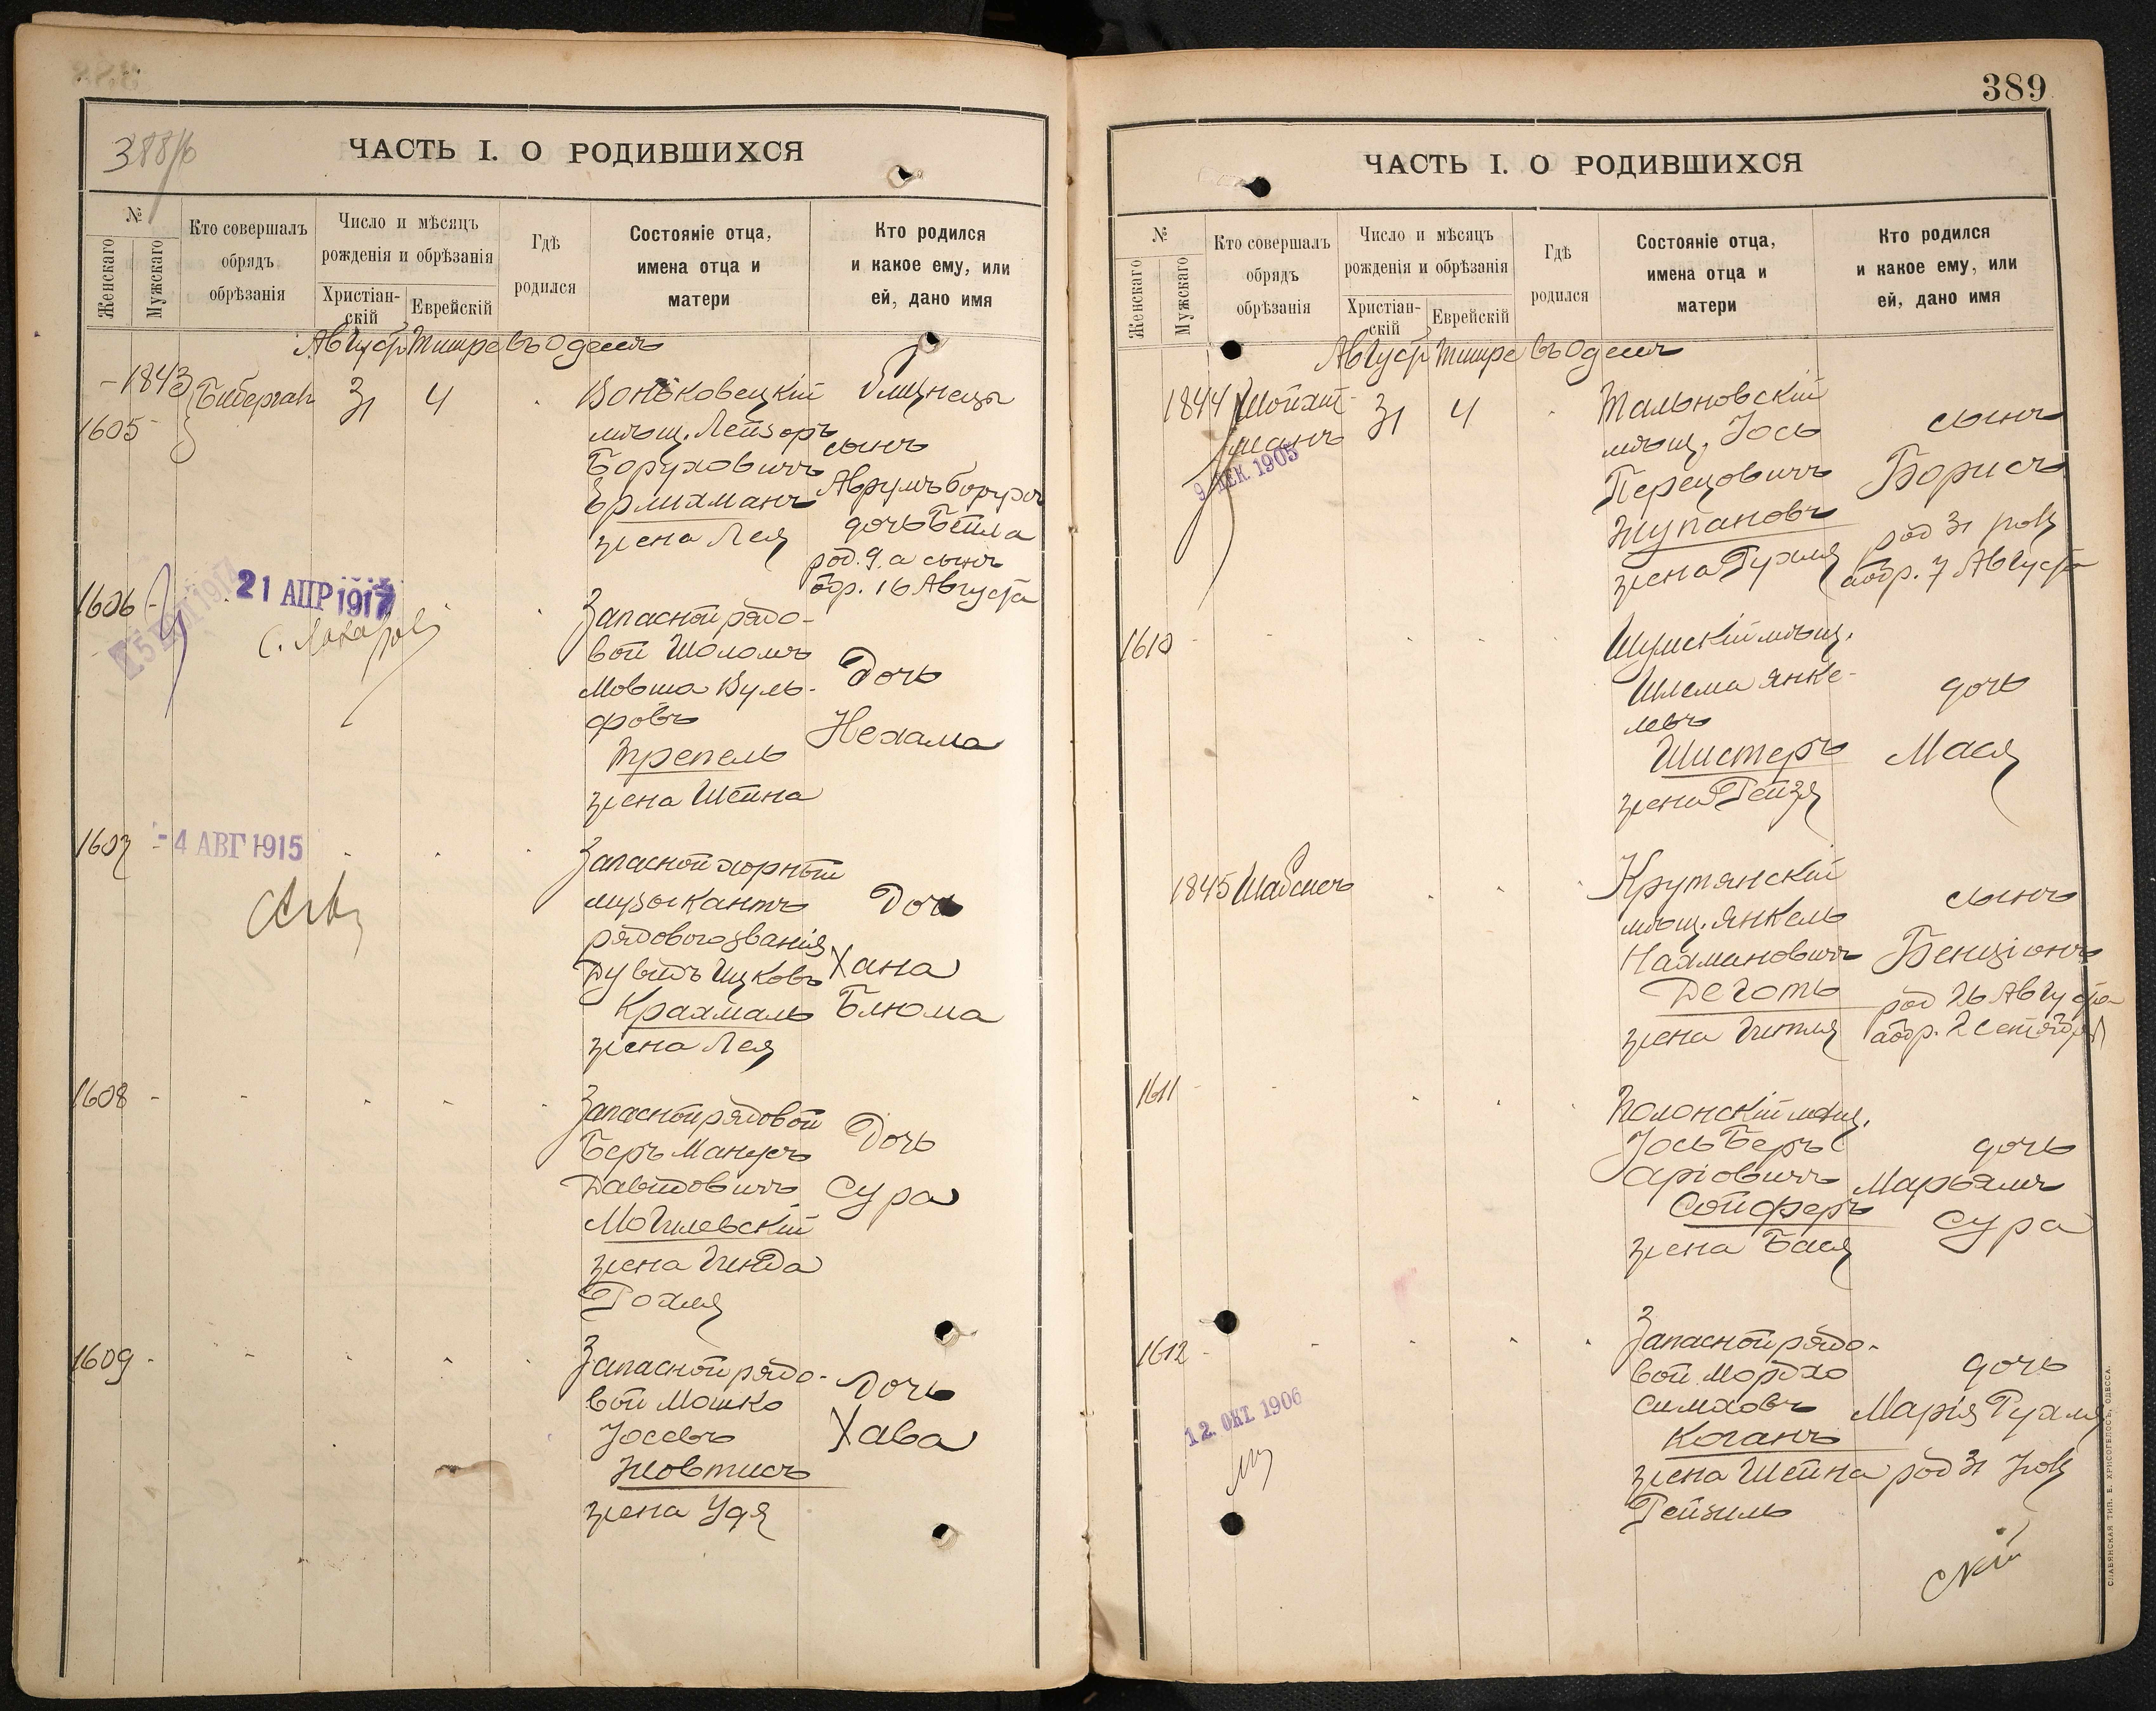 388/б
ЧАСТЬ I. О РОДИВШИХСЯ
№
Женскаго
Мужскаго
Кто совершалъ обрядъ обрѣзанія
Число и мѣсяцъ рожденія и обрѣзанія
Христіан-скій
Еврейскій
Гдѣ родился
Состояніе отца, имена отца и матери
Кто родился и какое ему, или ей, дано имя
Август Тишре въ Одессѣ
1843
1605
31 4
мѣщ. Лейзоръ
Боруховичъ
жена Лея
близнецы
сынъ
Аврумъ Борухъ
дочь Бейла
род. 9. а сынъ
обр. 16 Августа
1606 -
21 АПР 1917
Запасной рядо-
вой Шоломъ
Мовша Вуль-
фовъ
Трепель
жена Шейна
Дочь
Нехама
1607
-4 АВГ 1915
Запасной хорный
музыкантъ
рядового званія
Дувидъ Ицковъ
Крахмаль
жена Лея
Дочь
Хана
Блюма
1608 -
Запасной рядовой
Беръ Манусъ
Давидовичъ
Могилевскій
жена Гинда
Рохля
Дочь
Сура
1609 -
Запасной рядо-
вой Мошко
Іосевъ
Жовтисъ
жена Удя
Дочь
Хава
389
ЧАСТЬ I. О РОДИВШИХСЯ
№
Женскаго
Мужскаго
Кто совершалъ обрядъ обрѣзанія
Число и мѣсяцъ рожденія и обрѣзанія
Христіан-скій
Еврейскій
Гдѣ родился
Состояніе отца, имена отца и матери
Кто родился и какое ему, или ей, дано имя
Август Тишре въ Одессѣ
1844 Шойхет-
манъ
31 4
9 ДЕК. 1905
Тальновскій
мѣщ. Іось
Перецовичъ
Жупановъ
жена Рухля
сынъ
Борисъ
род 31 Іюля
обр. 7 Августа
1610
Шумскій мѣщ.
Шлема Янке-
левъ
Шистеръ
жена Рейзя
дочь
Мася
1845 Шабсисъ
Крутянскій
мѣщ. Янкель
Нахмановичъ
Деготь
жена Гитля
сынъ
Бенціонъ
род 26 Августа
обр. 2 Сентября
1611
Полонскій мѣщ.
Іось Беръ
Аріовичъ
Сойферъ
жена Бася
дочь
Марьямъ
Сура
1612
12. ОКТ. 1906
Запасной рядо-
вой Мордхо
Симховъ
Коганъ
жена Шейна
Рейзиль
дочь
Марія Рухля
род 31 Іюля
СЛАВЯНСКАЯ ТИП. Е. ХРИСОГЕЛОСЪ, ОДЕССА.